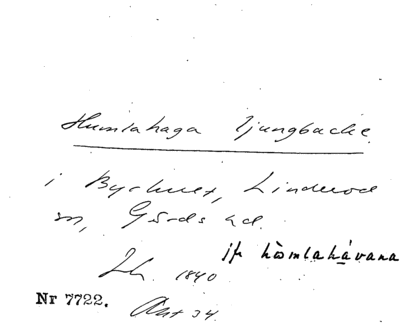 Humlahaga ljungbacke
i Byahuset, Linderöd
sn, Gärds hd.
jfr hòmlahávana
1840
Nr 7722. Akt 34